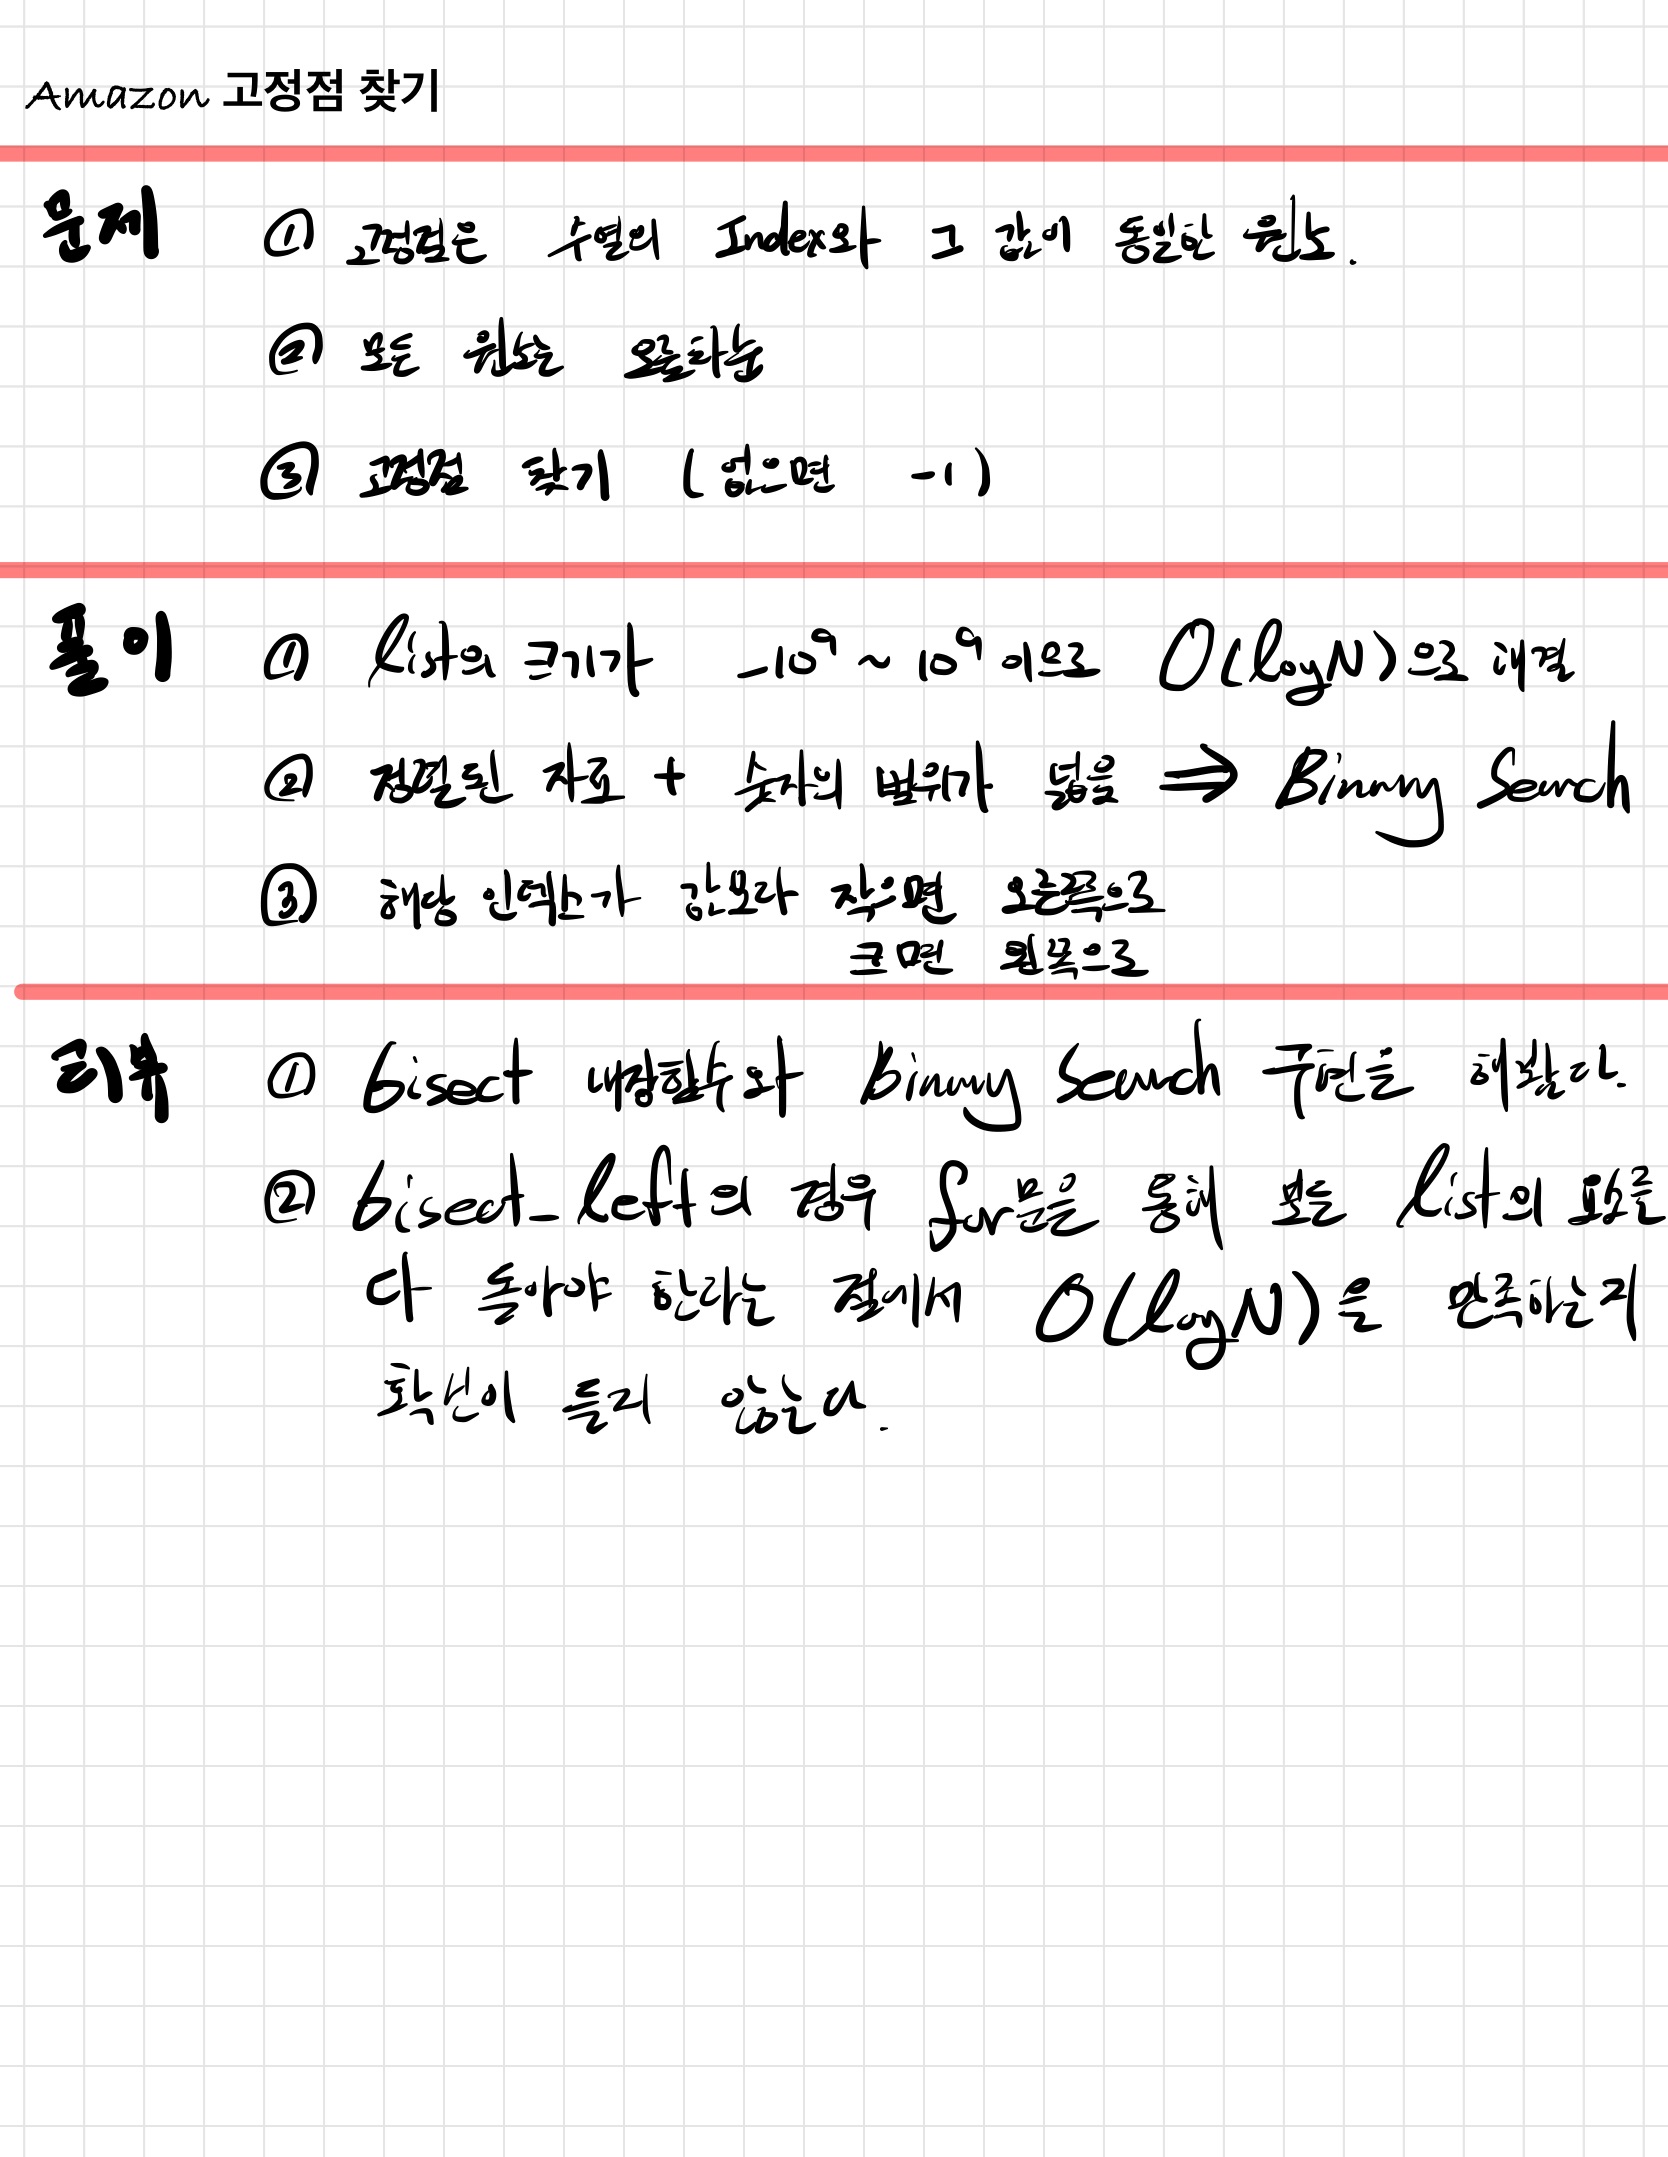 Amazon 고정점 찾기
문제 ① 고정점은 수열의 Index와 그 값이 동일한 원소.
② 모든 원소는 오름차순
③ 고정점 찾기 (없으면 -1)
풀이 ① list의 크기가 -10⁹ ~ 10⁹ 이므로 O(logN)으로 해결
② 정렬된 자료 + 숫자의 범위가 넓음 ⇒ Binary Search
③ 해당 인덱스가 값보다 작으면 오른쪽으로
크면 왼쪽으로
리뷰 ① bisect 내장함수와 Binary Search 구현을 해봤다.
② bisect_left의 경우 for문을 통해 모든 list의 요소를
다 돌아야 한다는 점에서 O(logN)을 만족하는지
확신이 들지 않는다.